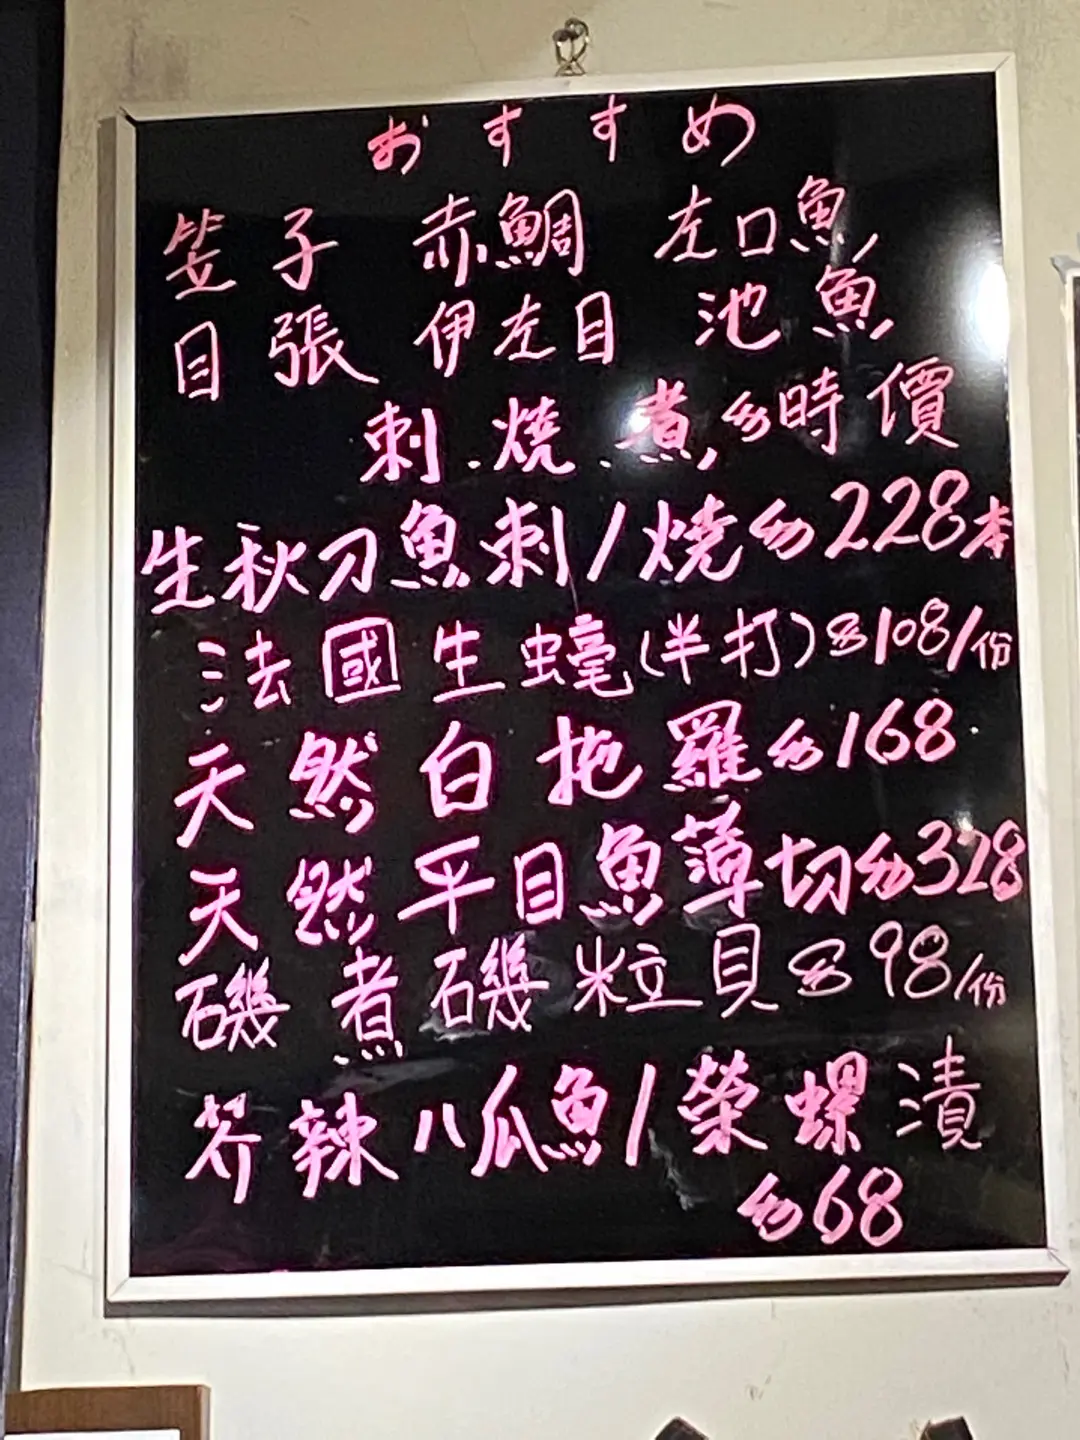 おすすめ
笠子 赤鯛 左口魚
目張 伊左目 池魚
刺.燒.煮,$時價
生秋刀魚刺/燒$228本
法國生蠔(半打)$108/份
天然白拖羅$168
天然平目魚薄切$328
磯煮磯粒貝$98/份
芥辣八瓜魚/榮螺漬
$68